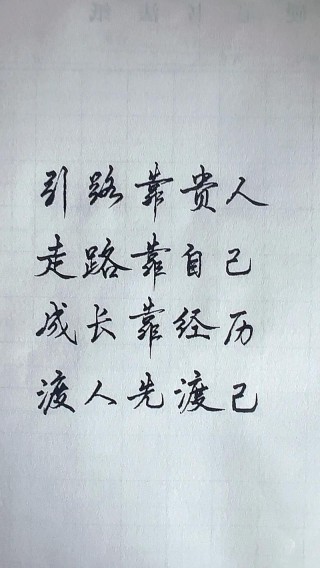 引路靠貴人
走路靠自己
成长靠经历
渡人先渡己